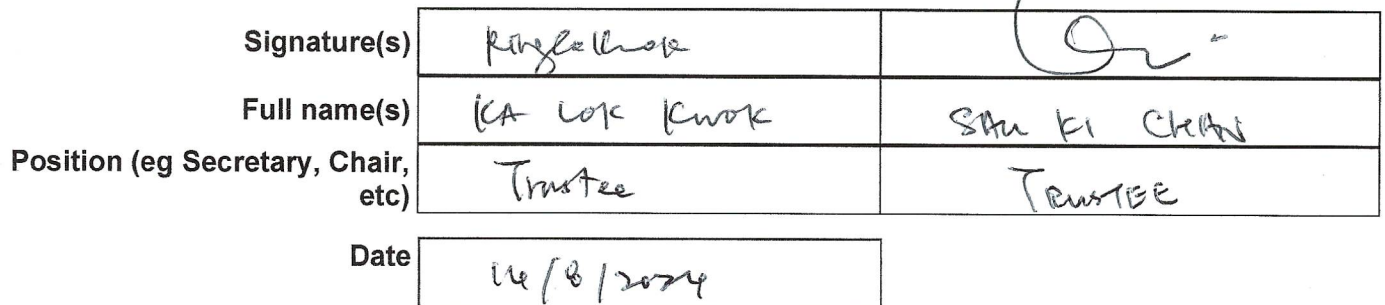 Signature(s)
Full name(s) KA LOK KWOK SAU KI CHAN
Position (eg Secretary, Chair, etc) Trustee TRUSTEE
Date 14/8/2024